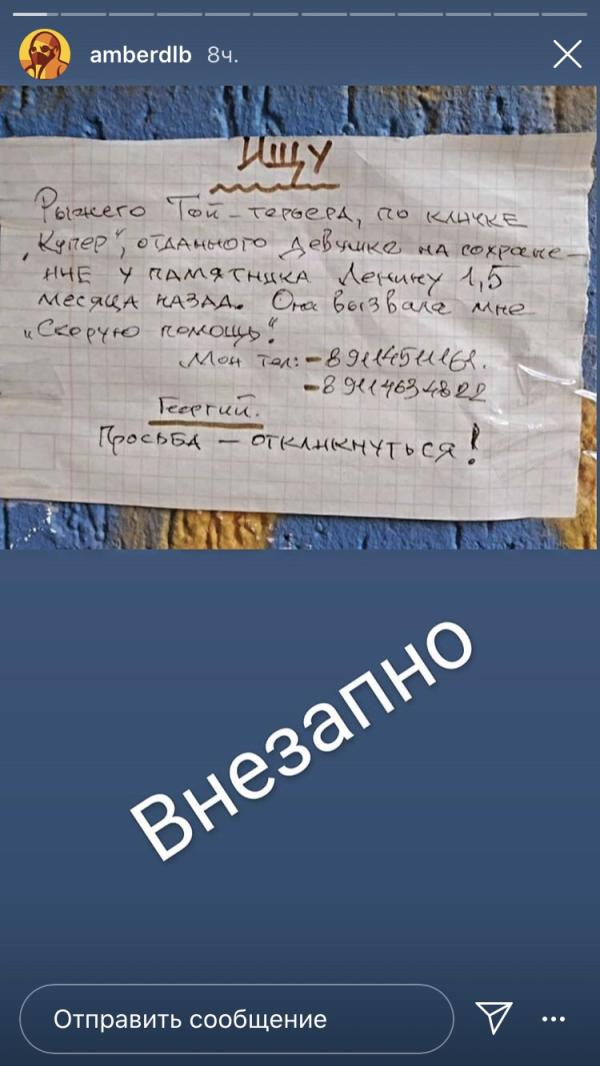 amberdlb 8ч.
Ищу
Рыжего Той-терьера, по кличке
„Купер“, отданного девушке на сохране-
ние у памятника Ленину 1,5
месяца назад. Она вызвала мне
„Скорую помощь“.
Мои тел: -
-
Георгий.
Просьба – откликнуться!
Внезапно
Отправить сообщение